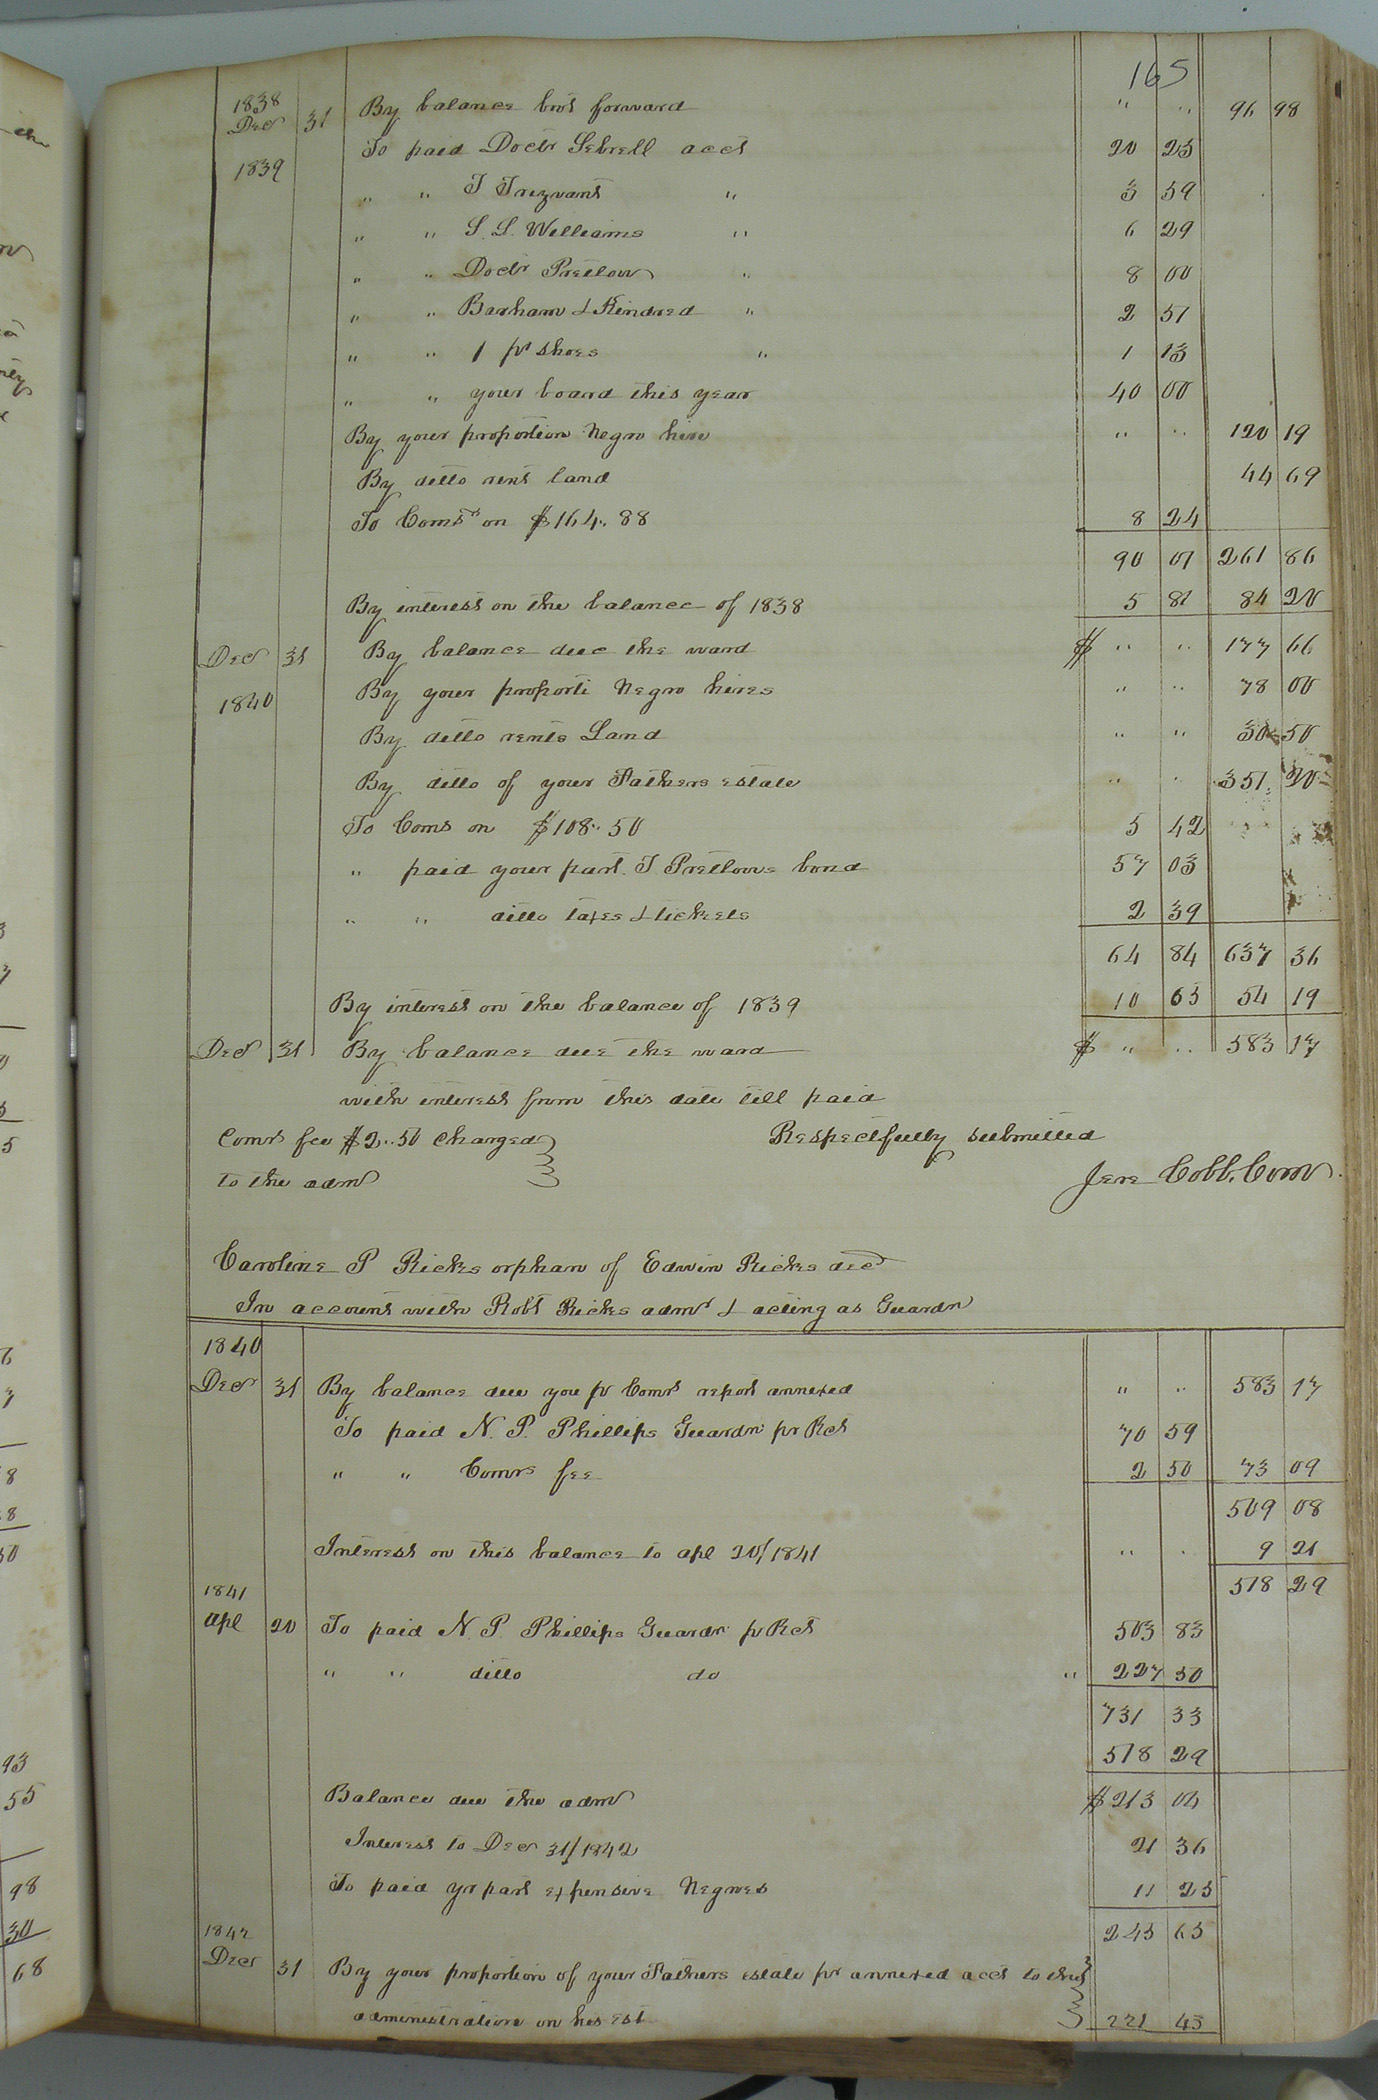 165
1838 Decr 31 By balance brot forward " " 96 98
1839 To paid Doctr Sebrell acct 20 23
" " T Trezvant " 3 59
" " S. L. Williams " 6 29
" " Doctr Pretlow " 8 00
" " Barham & Kindred " 2 51
" " 1 pr shoes " 1 13
" " your board this year 40 00
By your proportion Negro hire " " 120 19
By ditto rent land 44 69
To Comss on $164.. 88 8 24
90 01 261 86
By interest on the balance of 1838 5 81 84 20
Decr 31 By balance due the ward $ " " 177 66
1840 By your proporti Negro hires " " 78 00
By ditto rents Land " " 30 50
By ditto of your Fathers estate " " 351 20
To Coms on $108.. 50 5 42
" paid your part T Pretlows bond 57 03
" " ditto taxes & tickets 2 39
64 84 637 36
By interest on the balance of 1839 10 65 54 19
Decr 31 By balance due the ward $ " " 583 17
with interest from this date till paid
Comrs fee $2..50 charged Respectfully submitted
to the admr Jere Cobb. Comr
Caroline P Ricks orphan of Edwin Ricks decd
In account with Robt Ricks admr & acting as Guardn
1840
Decr 31 By balance due you pr Comrs report annexed " " 583 17
To paid N. P. Phillips Guardn pr Rct 70 59
" " Comrs fee 2 50 73 09
509 08
Interest on this balance to apl 20/1841 " " 9 21
518 29
1841
apl 20 To paid N. P. Phillips Guardn pr Rct 503 83
" " ditto do " 227 50
731 33
518 29
Balance due the admr $213 04
Interest to Decr 31/1842 21 36
To paid yr part expensive Negroes 11 25
245 65
1842
Decr 31 By your proportion of your Fathers estate pr annexed acct to this
administration on his Est 221 43